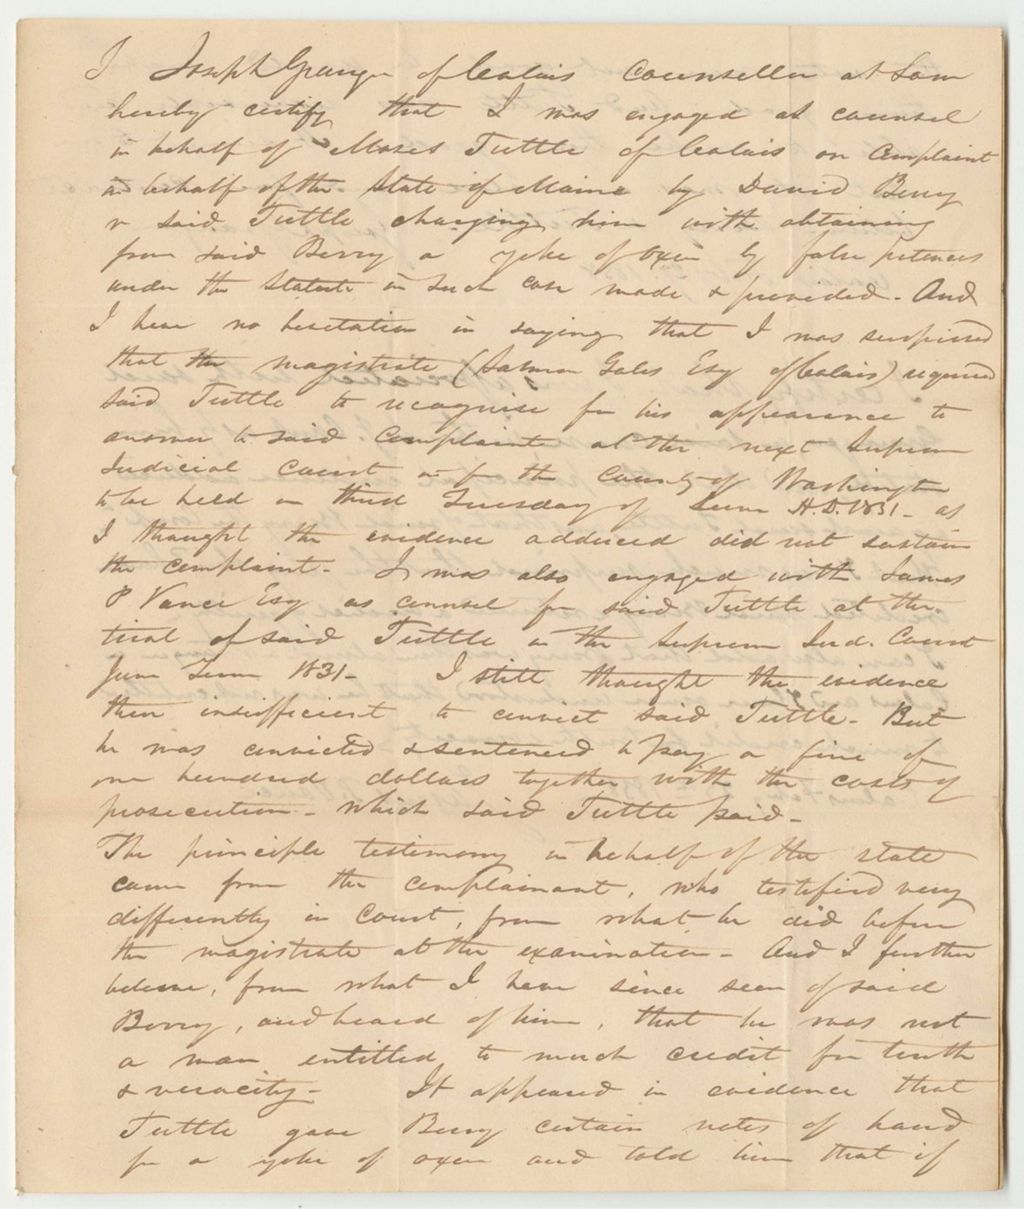 I Joseph Granger of Calais Counsellor at Law
hereby certify that I was engaged as counsel
in behalf of Moses Tuttle of Calais on Complaint
in behalf of the State of Maine by David Berry
v said Tuttle charging him with obtaining
from said Berry a yoke of oxen by false pretences
under the Statute in such case made & provided - And
I have no hesitation in saying that I was surprised
that the magistrate (Salmon Gates Esq of Calais) required
said Tuttle to recognise for his appearance to
answer to said Complaint at the next Supreme
Judicial Court in for the County of Washington
to be held on third Tuesday of June A.D. 1831 - as
I thought the evidence adduced did not sustain
the complaint - I was also engaged with James
P Vance Esq as counsel for said Tuttle at the
trial of said Tuttle in the Supreme Jud. Court
June Term 1831 - I still thought the evidence
then insufficient to convict said Tuttle - But
he was convicted & sentenced to pay a fine of
one hundred dollars together with the costs of
prosecution - which said Tuttle paid -
The principle testimony in behalf of the state
came from the complainant, who testified very
differently in Court, from what he did before
the magistrate at the examination - And I further
believe, from what I have since seen of said
Berry, and heard of him, that he was not
a man entitled to much credit for truth
& veracity - It appeared in evidence that
Tuttle gave Berry certain notes of hand
for a yoke of oxen and told him that if